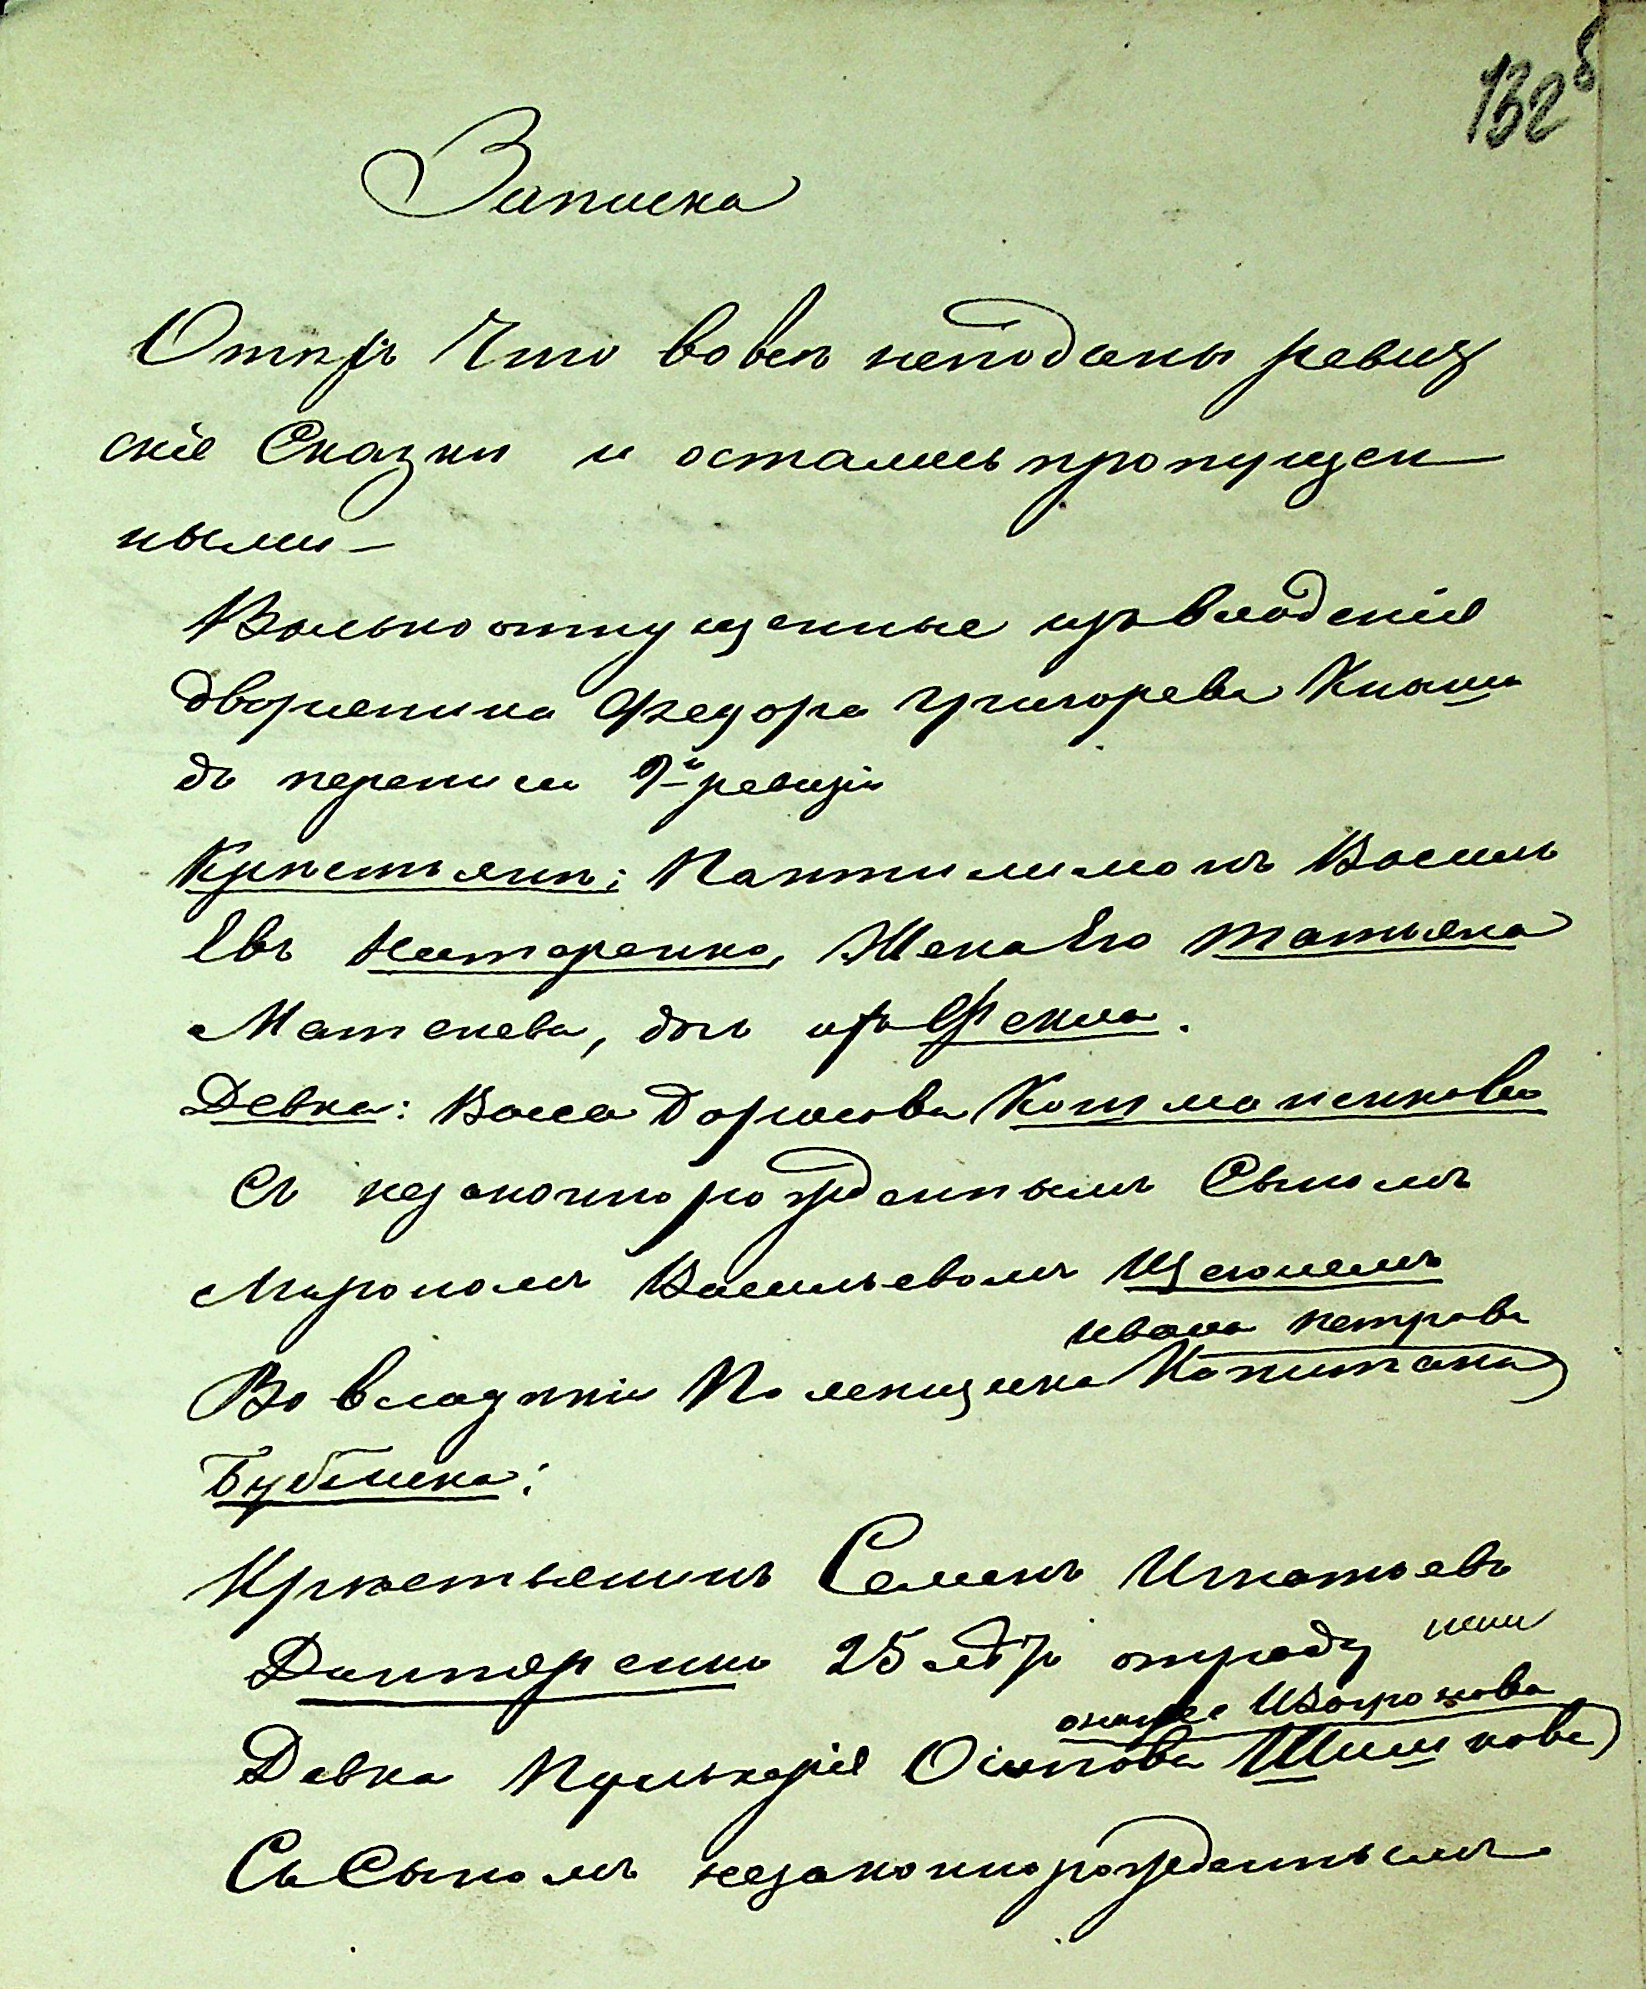 132б
Записка
Отпхъ Что вовсе неподаны ревиз
скіе Сказки и остались пропущен
ными
Вольноотпущенные изъ владенія
дворянина Федора Григорева Кныша
до переписи 9й ревизіи
Крестьяне: Пантилимонъ Василь
Евъ Нестеренко, Жена Его Татьяна
Матвеева, дочь ихъ Фекла.
Девка: Васса Борисова
Съ незаконнорожденнымъ Сыномъ
Мирономъ Васильевомъ
Во владеніи Помещика Капитана
Ивана Петрова
Бублика:
Крестьянинъ Семенъ Игнатьевъ
25 летъ отроду
Девка Пулькерія Осипова Шишкова
Съ Сыномъ незаконнорожденнымъ